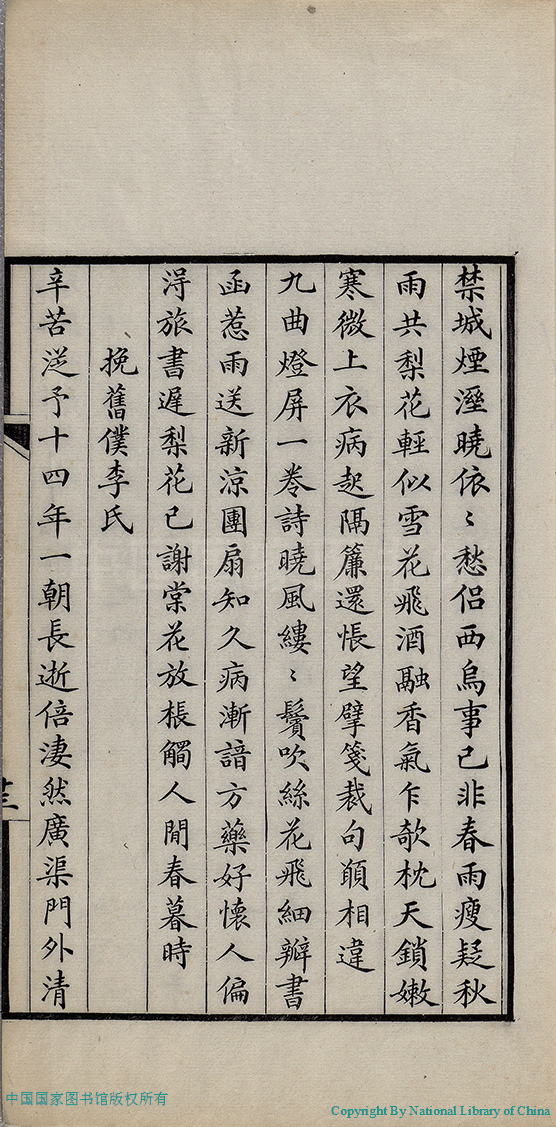 禁城煙溼曉依〻愁侶西烏事已非春雨瘦疑秋
雨共梨花輕似雪花飛酒融香氣乍欹枕天鎖嫩
寒微上衣病起隔簾還悵望擘箋裁句顛相違
九曲燈屏一卷詩曉風縷〻鬢吹絲花飛細瓣書
函惹雨送新涼團扇知久病漸諳方藥好懷人偏
淂旅書遲梨花已謝棠花放棖觸人閒春暮時
挽舊僕李氏
辛苦從予十四年一朝長逝倍淒然廣渠門外清
十三
中国国家图书馆版权所有
Copyright By National Library of China